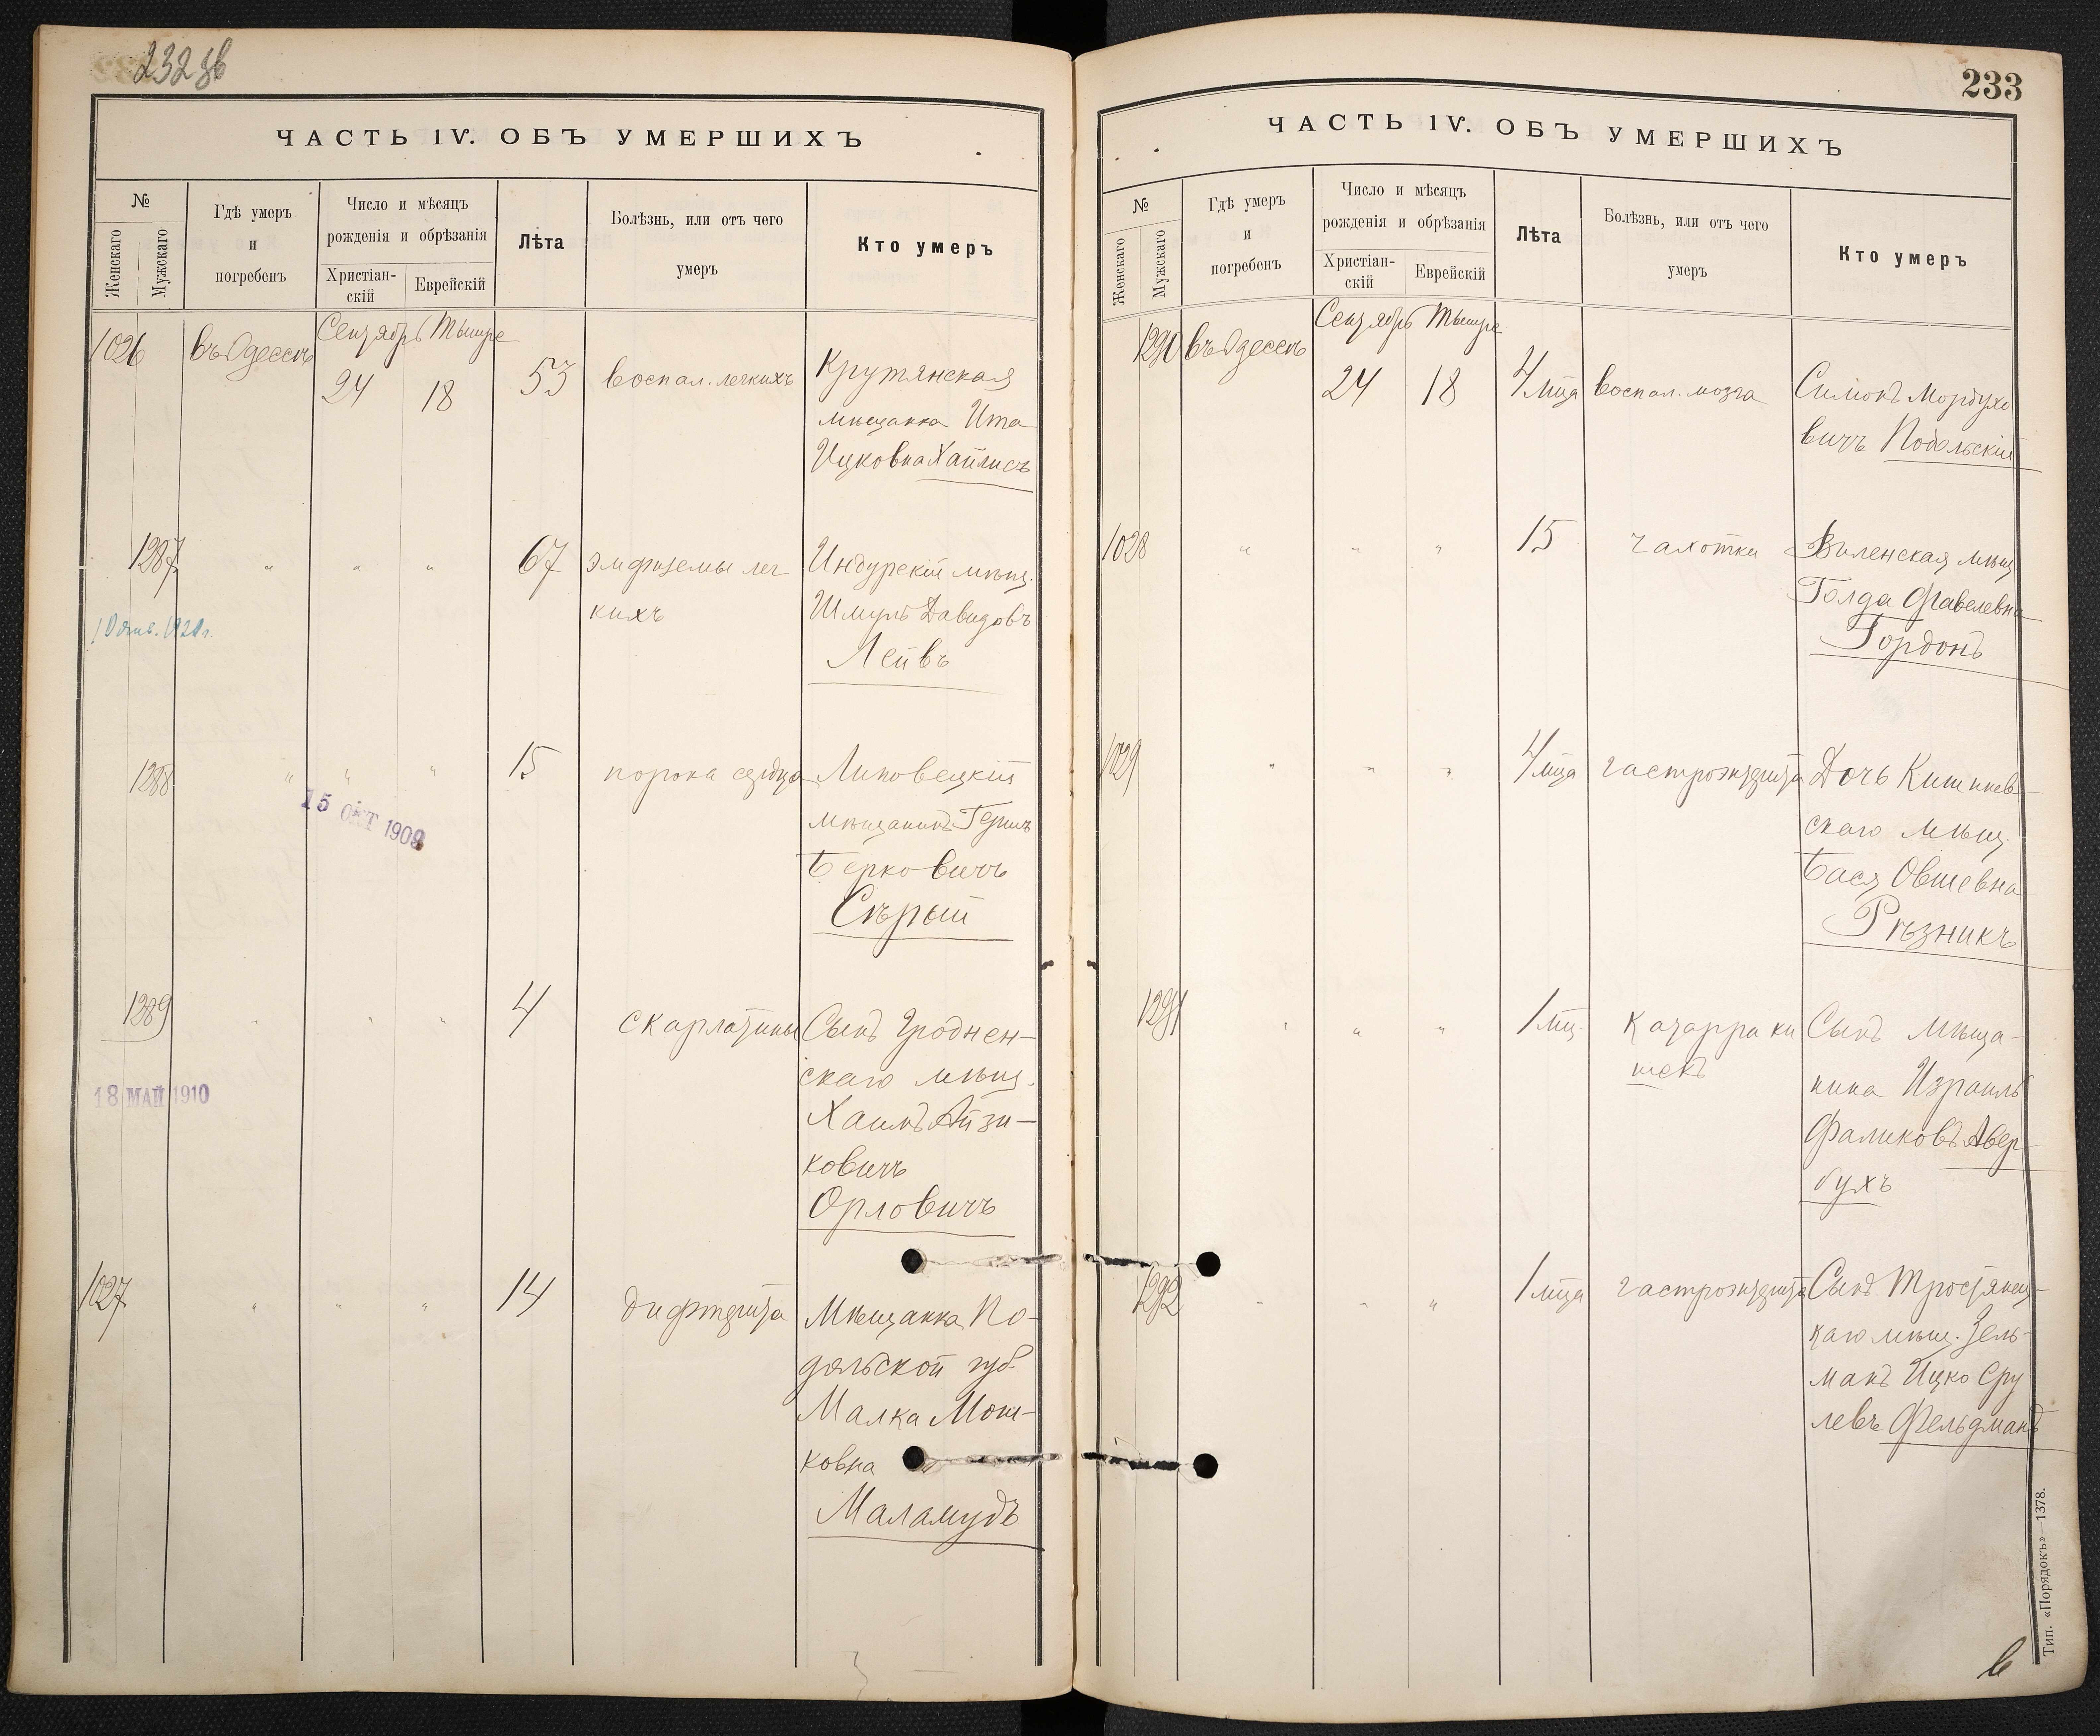 232 об
ЧАСТЬ IV. ОБЪ УМЕРШИХЪ
№
Женскаго
Мужскаго
Гдѣ умеръ
и
погребенъ
Число и мѣсяцъ
рожденія и обрѣзанія
Христіан-
скій
Еврейскій
Лѣта
Болѣзнь, или отъ чего
умеръ
Кто умеръ
1026 въ Одессѣ Сентябрь Тишре
24 18 53 воспал. легкихъ Крутянская
мѣщанка Ита
Ицковна Хайлисъ
1287 " " " 67 эмфиземы лег Индурскій мѣщ.
кихъ Шмуль Давидовъ
Лейвъ
10 янв. 1921 г.
1288 " " " 15 порока сердца Липовецкій
15 ОКТ 1909
мѣщанинъ Гершъ
Берковичъ
Сѣрый
1289 " " " 4 скарлатины Сынъ Гроднен-
скаго мѣщ.
18 МАЙ 1910
Хаимъ Айзи-
ковичъ
Орловичъ
1027 " " " 14 дифтерита Мѣщанка По-
дольской губ.
Малка Мош-
ковна
Маламудъ
233
ЧАСТЬ IV. ОБЪ УМЕРШИХЪ
№
Женскаго
Мужскаго
Гдѣ умеръ
и
погребенъ
Число и мѣсяцъ
рожденія и обрѣзанія
Христіан-
скій
Еврейскій
Лѣта
Болѣзнь, или отъ чего
умеръ
Кто умеръ
1290 въ Одессѣ Сентябрь Тишре
24 18 4 мца воспал. мозга Симонъ Мордухо
вичъ Подольскій
1028 " " " 15 чахотки Виленская мѣщ
Голда Фавелевна
Гордонъ
1029 " " " 4 мца гастроэнтерита Дочь Кишинев
скаго мѣщ.
Бася Овшевна
Рѣзникъ
1291 " " " 1 мц. катарра ки Сынъ мѣща-
шекъ нина Израиль
Фаликовъ Авер-
бухъ
1292 " " " 1 мца гастроэнтерита Сынъ Тростянец-
каго мѣщ. Зель-
манъ Ицко Сру
левъ Фельдманъ
Тип. «Порядокъ»—1378.